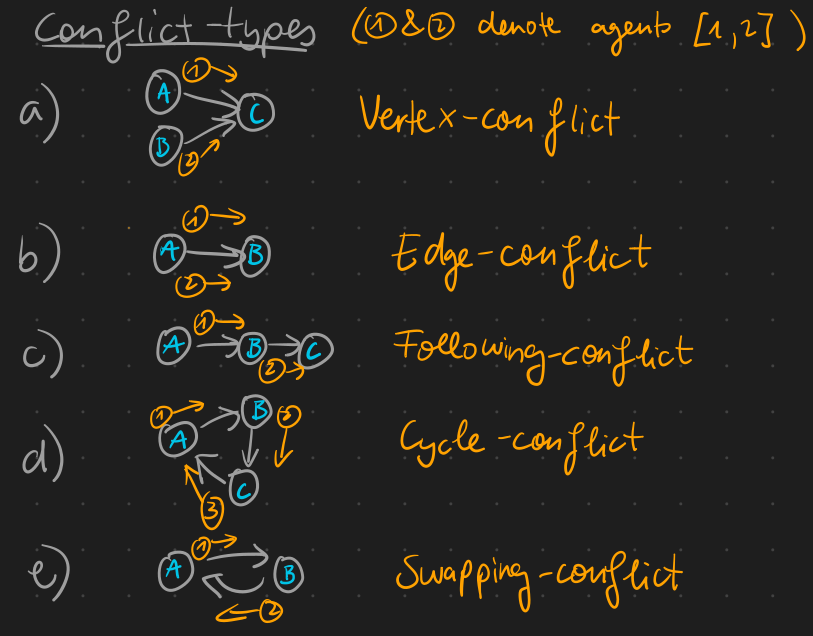 Conflict-types (①&② denote agents [1,2])
a) A ① B ② C Vertex-conflict
b) ① A B ② Edge-conflict
c) ① A B C ② Following-conflict
d) ① A B ② C ③ Cycle-conflict
e) ① A B ② Swapping-conflict